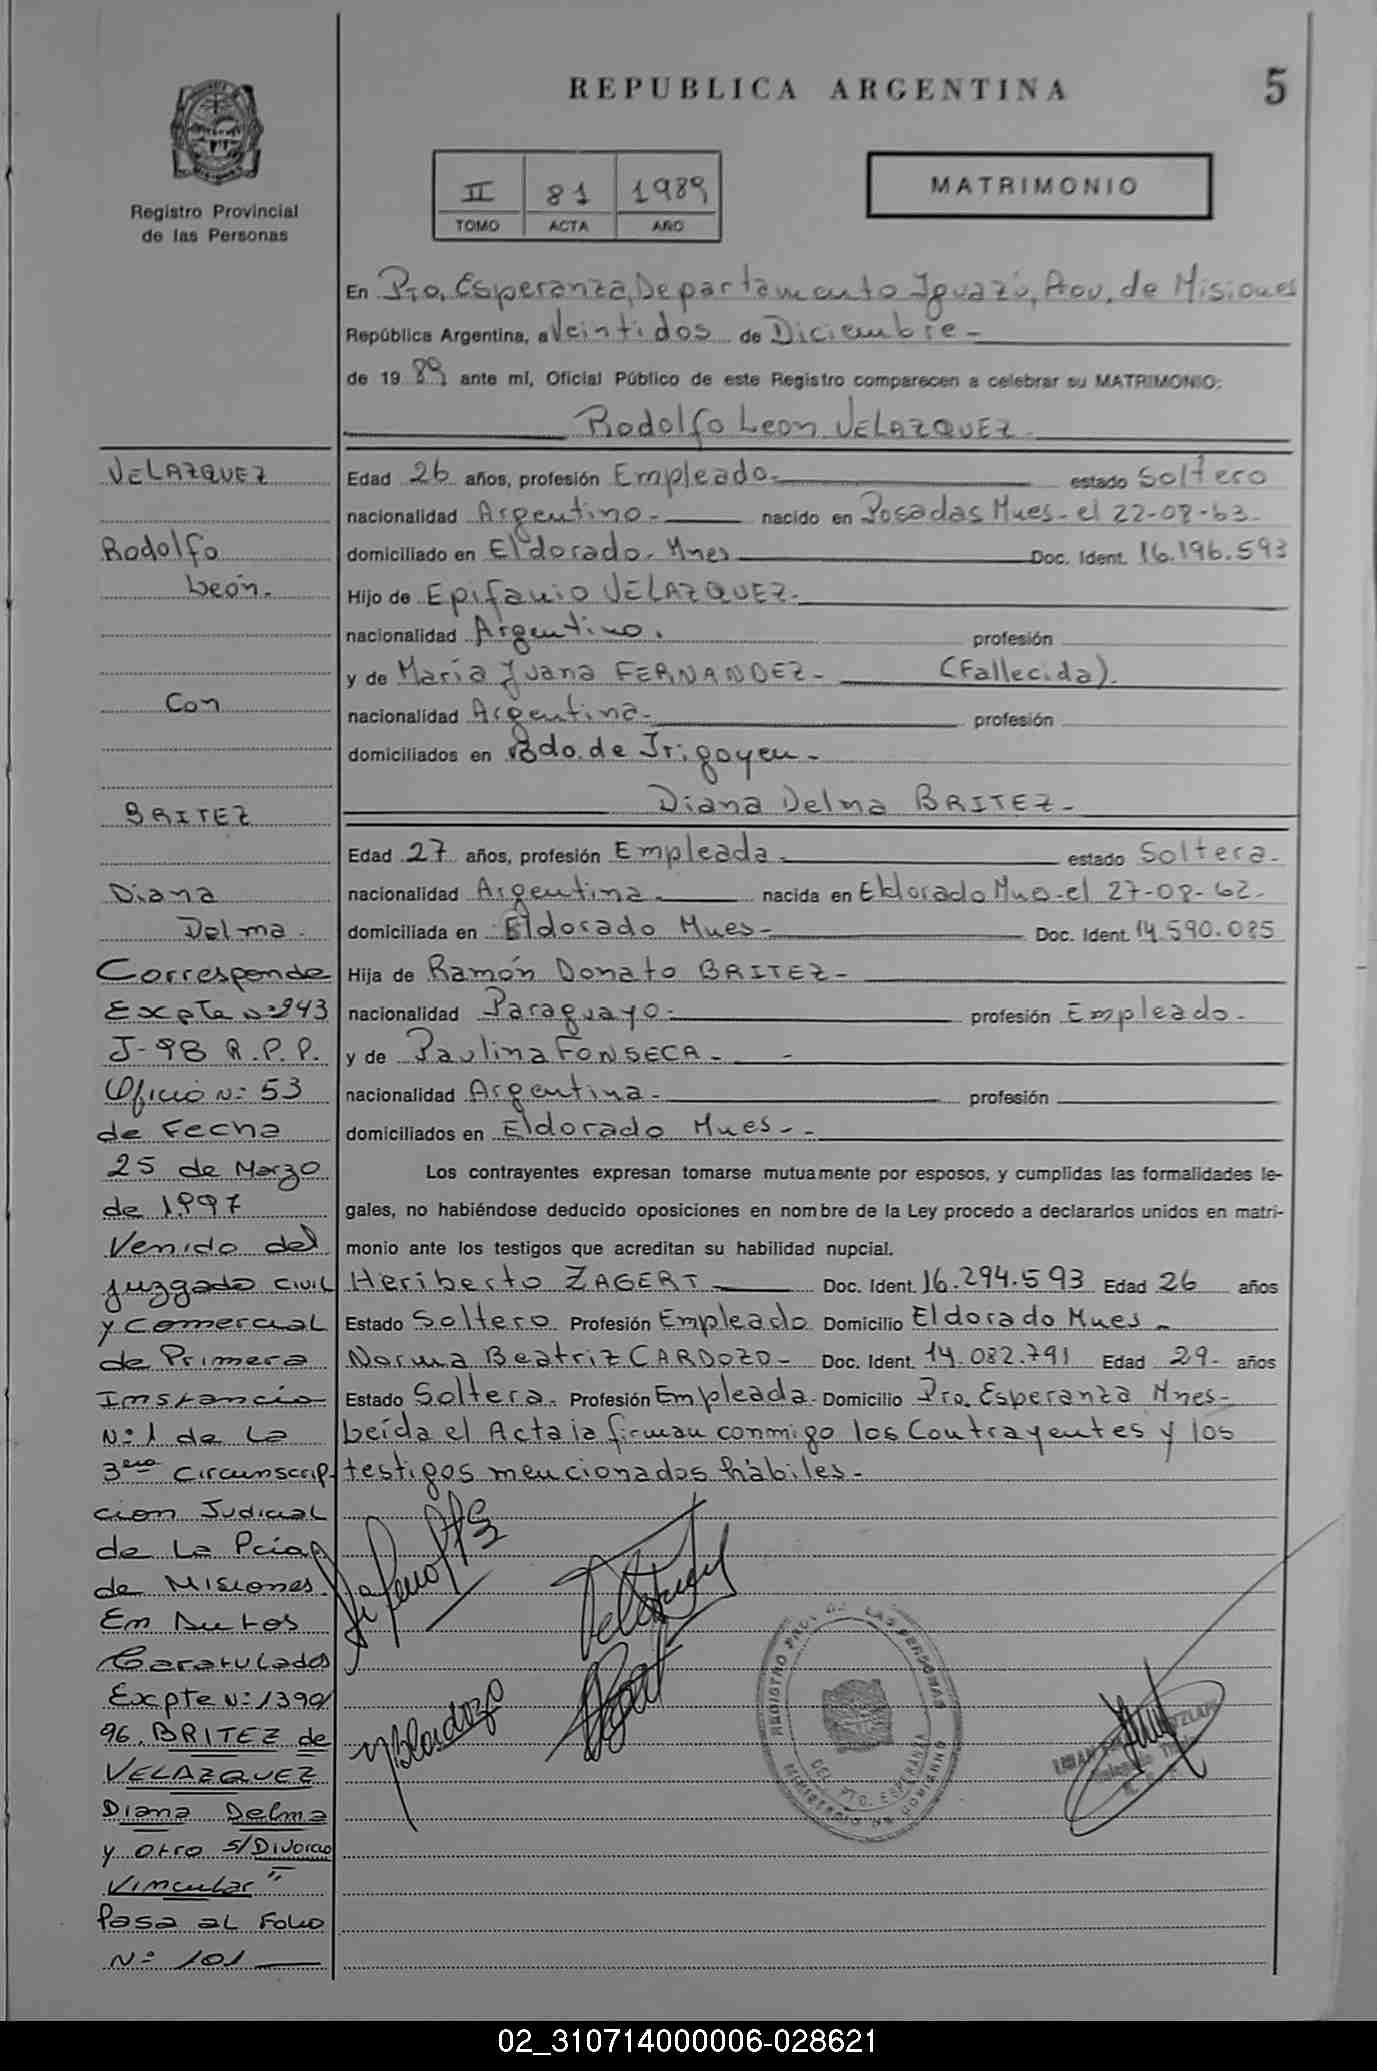 REPUBLICA ARGENTINA
5
Registro Provincial
de las Personas
II 81 1989
TOMO ACTA AÑO
MATRIMONIO
En Pto. Esperanza, Departamento Iguazú, Prov. de Misiones
República Argentina, a Veintidos de Diciembre -
de 19 89 ante mí, Oficial Público de este Registro comparecen a celebrar su MATRIMONIO:
Rodolfo Leon VELAZQUEZ
Edad 26 años, profesión Empleado estado Soltero
nacionalidad Argentino - nacido en Posadas Mnes - el 22-08-63 -
domiciliado en Eldorado - Mnes Doc. Ident. 16.196.593
Hijo de Epifanio VELAZQUEZ -
nacionalidad Argentino. profesión
y de María Juana FERNANDEZ - (Fallecida).
nacionalidad Argentina - profesión
domiciliados en Bdo. de Irigoyen -
Diana Delma BRITEZ -
Edad 27 años, profesión Empleada estado Soltera -
nacionalidad Argentina nacida en Eldorado Mno - el 27-08-62 -
domiciliada en Eldorado Mnes - Doc. Ident. 14.590.085
Hija de Ramón Donato BRITEZ -
nacionalidad Paraguayo - profesión Empleado -
y de Paulina FONSECA -
nacionalidad Argentina - profesión
domiciliados en Eldorado Mnes -
Los contrayentes expresan tomarse mutuamente por esposos, y cumplidas las formalidades le-
gales, no habiéndose deducido oposiciones en nombre de la Ley procedo a declararlos unidos en matri-
monio ante los testigos que acreditan su habilidad nupcial.
Heriberto ZAGERT Doc. Ident. 16.294.593 Edad 26 años
Estado Soltero Profesión Empleado Domicilio Eldorado Mnes -
Norma Beatriz CARDOZO - Doc. Ident. 14.082.791 Edad 29 - años
Estado Soltera. Profesión Empleada - Domicilio Pto. Esperanza Mnes -
Leída el Acta la firman conmigo los Contrayentes y los
testigos mencionados hábiles -
VELAZQUEZ
Rodolfo
León.
Con
BRITEZ
Diana
Delma.
Corresponde
Expte Nº 243
J-98 R.P.P.
Oficio Nº 53
de Fecha
25 de Marzo
de 1997
Venido del
Juzgado Civil
y Comercial
de Primera
Instancia
Nº 1 de La
3era Circunscrip-
cion Judicial
de La Pcia
de Misiones
En Autos
Caratulados
Expte Nº 1399/
96. BRITEZ de
VELAZQUEZ
Diana Delma
y otro S/Divorcio
Vincular"
Pasa al Folio
Nº 101
REGISTRO PROV. DE LAS PERSONAS
PTO. ESPERANZA
MINISTERIO DE GOBIERNO
02_310714000006-028621